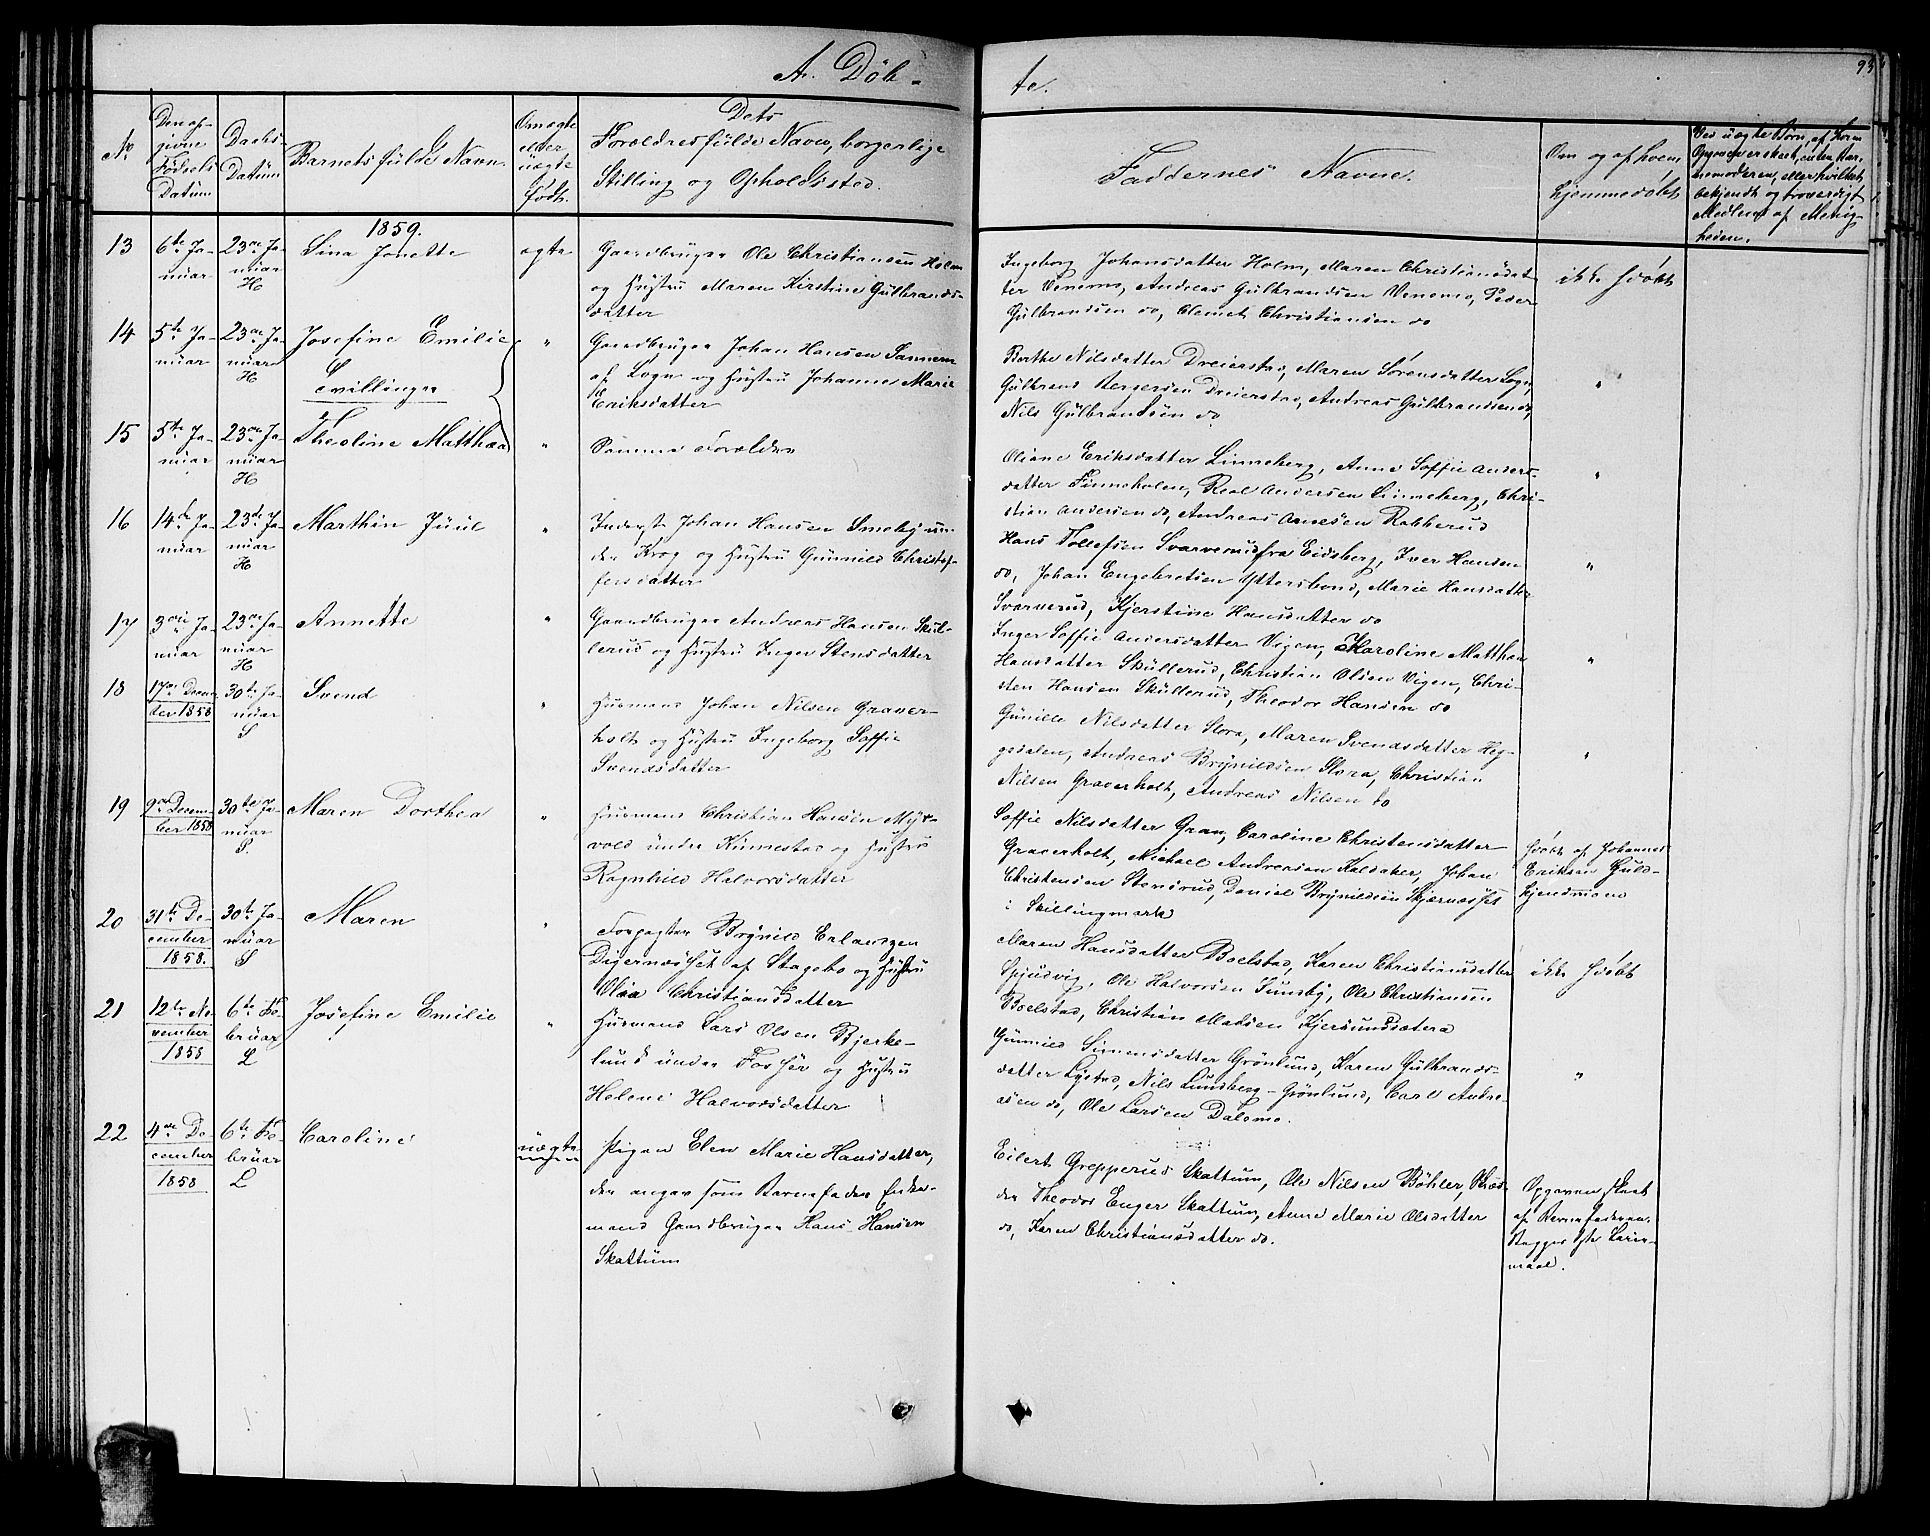 A. Døb-
te.
93
No
Den op-
givne
Fødsels
Datum
Daabs-
Datum
Barnets fulde Navn.
Om ægte
eller
uægte
født.
Dets
Forældres fulde Navn, borgerlige
Stilling og Opholdssted.
Faddernes Navne.
Om og af hvem
hjemmedøbt
Ved uægte Børn, af hvem
Opgaven er skeet, enten Bar-
nemoderen, eller hvilket
bekjendt og troværdigt
Medlem af Menig-
heden.
1859.
13
6te Ja-
nuar
23de Ja-
nuar
H
Lina Jonette
ægte
Gaardbruger Ole Christiansen Holm
og Hustru Maren Kirstine Gulbrands-
datter
Ingeborg Johansdatter Holm, Maren Christiansdat-
ter Venemo, Andreas Gulbrandsen Venemo, Peder
Gulbrandsen do, Clemet Christiansen do
ikke hjdøbt
14
5te Ja-
nuar
23de Ja-
nuar
H
Josefine Emilie
Tvillinger
"
Gaardbruger Johan Hansen Sannem
af Sogn og Hustru Johanne Marie
Eriksdatter
Berthe Nilsdatter Dreierstad, Maren Sørensdatter Sogn,
Gulbrand Bergersen Dreierstad, Andreas Gulbrandsen do,
Nils Gulbrandsen do.
"
15
5te Ja-
nuar
23de Ja-
nuar
H
Theoline Matthea
"
Samme Forældre
Oliane Eriksdatter Linneberg, Anne Soffie Anders-
datter Finneholen, Real Andersen Linneberg, Chri-
stian Andersen do, Andreas Arnesen Rakkerud
"
16
14de Ja-
nuar
23de Ja-
nuar
H
Marthin Juul
"
Inderst Johan Hansen Smeby un-
der Krog og Hustru Gunnild Christof-
fersdatter
Hans Tollefsen Svarverud fra Eidsberg, Iver Hansen
do, Johan Engebretsen Yttersbond, Marie Hansdatter
Svarverud, Kjerstine Hansdatter do
"
17
3die Ja-
nuar
23de Ja-
nuar
H
Annette
"
Gaardbruger Andreas Hansen Skul-
lerud og Hustru Inger Stensdatter
Inger Soffie Andersdatter Vigen, Karoline Matthea
Hansdatter Skullerud, Christian Olsen Vigen, Chri-
sten Hansen Skullerud, Theodor Hansen do
"
18
17de Decem-
ber 1858
30te Ja-
nuar
S
Svend
"
Husmand Johan Nilsen Graver-
holt og Hustru Ingeborg Soffie
Svendsdatter
Gunille Nilsdatter Slora, Maren Svendsdatter Heg-
gedalen, Andreas Brynildsen Slora, Christian
Nilsen Graverholt, Andreas Nilsen do
"
19
9de Decem-
ber 1858
30te Ja-
nuar
S.
Maren Dorthea
"
Husmand Christian Hansen Myr-
vold under Kinnestad og Hustru
Ragnhild Halvorsdatter
Soffie Nilsdatter Gran, Caroline Christensdatter
Graverholt, Michael Andreasen Kaldaker, Johan
Christensen Stensrud, Daniel Brynildsen Skjernæsset
i Skillingmark
hjdøbt af Johannes
Eriksen Huld-
kjendmoen
20
31te De-
cember
1858.
30te Ja-
nuar
S
Maren
"
Forpagter Brynild Erlandsen
Digernæsset af Stagebo og Hustru
Olea Christiansdatter
Maren Hansdatter Boelstad, Karen Christiansdatter
Spjudvig, Ole Halvorsen Sundby, Ole Christiansen
Boelstad, Christian Madsen Kjersundsætera
ikke hjdøbt
21
12te No-
vember
1858
6te Fe-
bruar
L
Josefine Emilie
"
Husmand Lars Olsen Bjerke-
lund under Fosser og Hustru
Helene Halvorsdatter
Gunnild Simensdatter Grønlund, Karen Gulbrands-
datter Lystad, Nils Lundberg-Grønlund, Carl Andre-
asen do, Ole Larsen Dalemo.
"
22
4de De-
cember
1858
6te Fe-
bruar
L
Caroline
uægte
Pigen Elen Marie Hansdatter,
der angav som Barnefader Enke-
mand Gaardbruger Hans Hansen
Skattum
Eilert Grepperud Skattum, Ole Nilsen Bøhler, Peder
Theodor Enger Skattum, Anne Marie Olsdatter
do, Karen Christiansdatter do.
Opgaven skeet
af Barnefaderen.
Begges 1ste Leier-
maal.